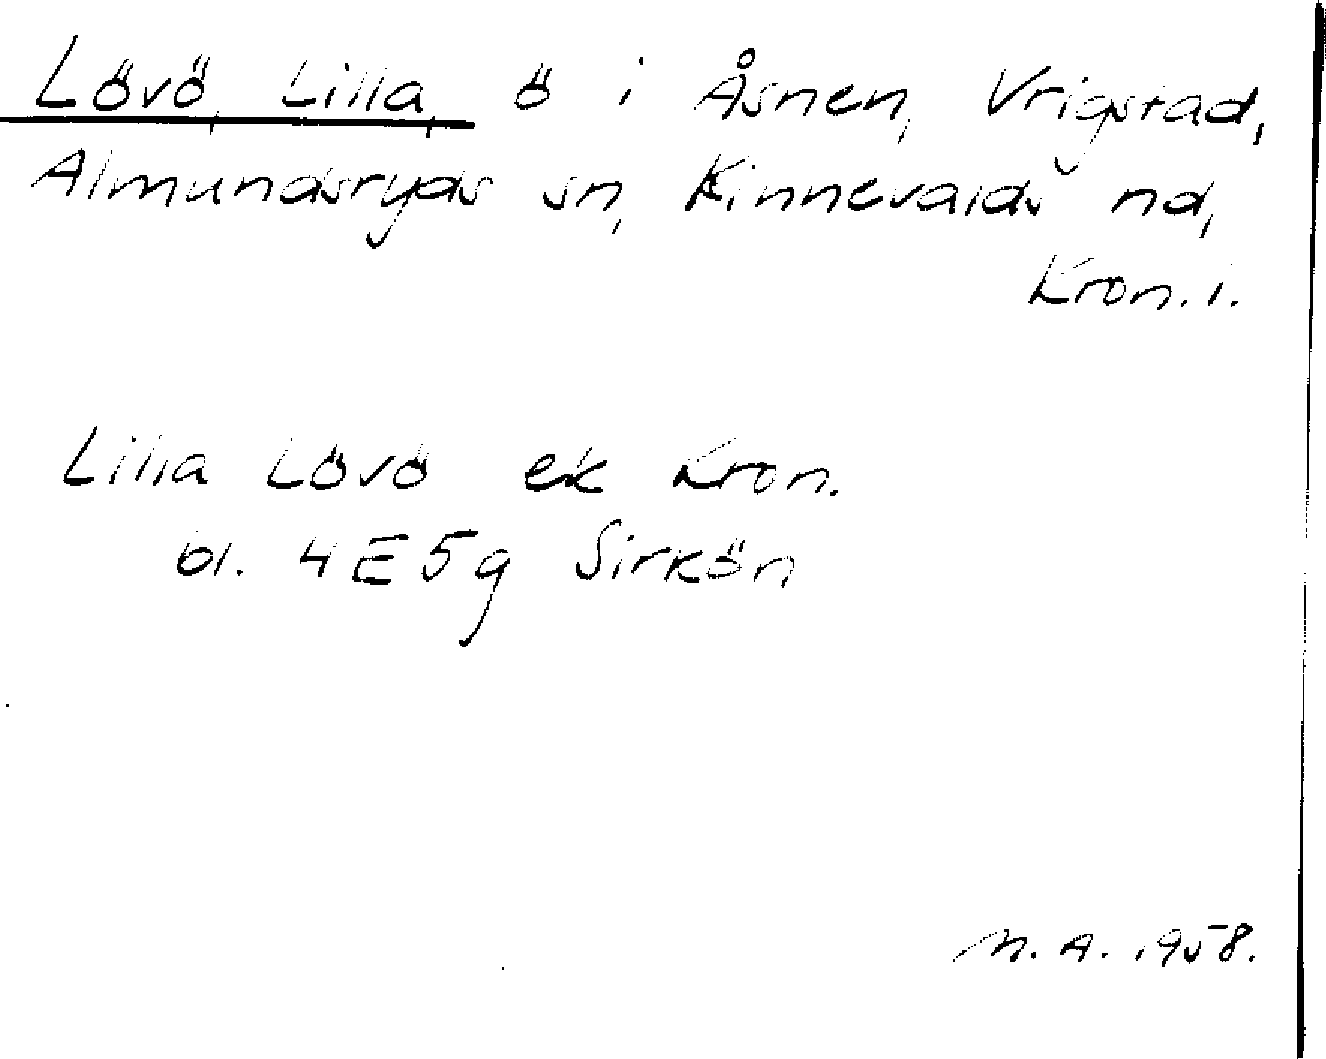 Lövö, Lilla, ö i Åsnen, Vrigstad,
Almundsryds sn, Kinnevalds hd,
Kron. l.
Lilla Lövö ek Kron.
bl. 4E5g Sirkön
M.A. 1958.